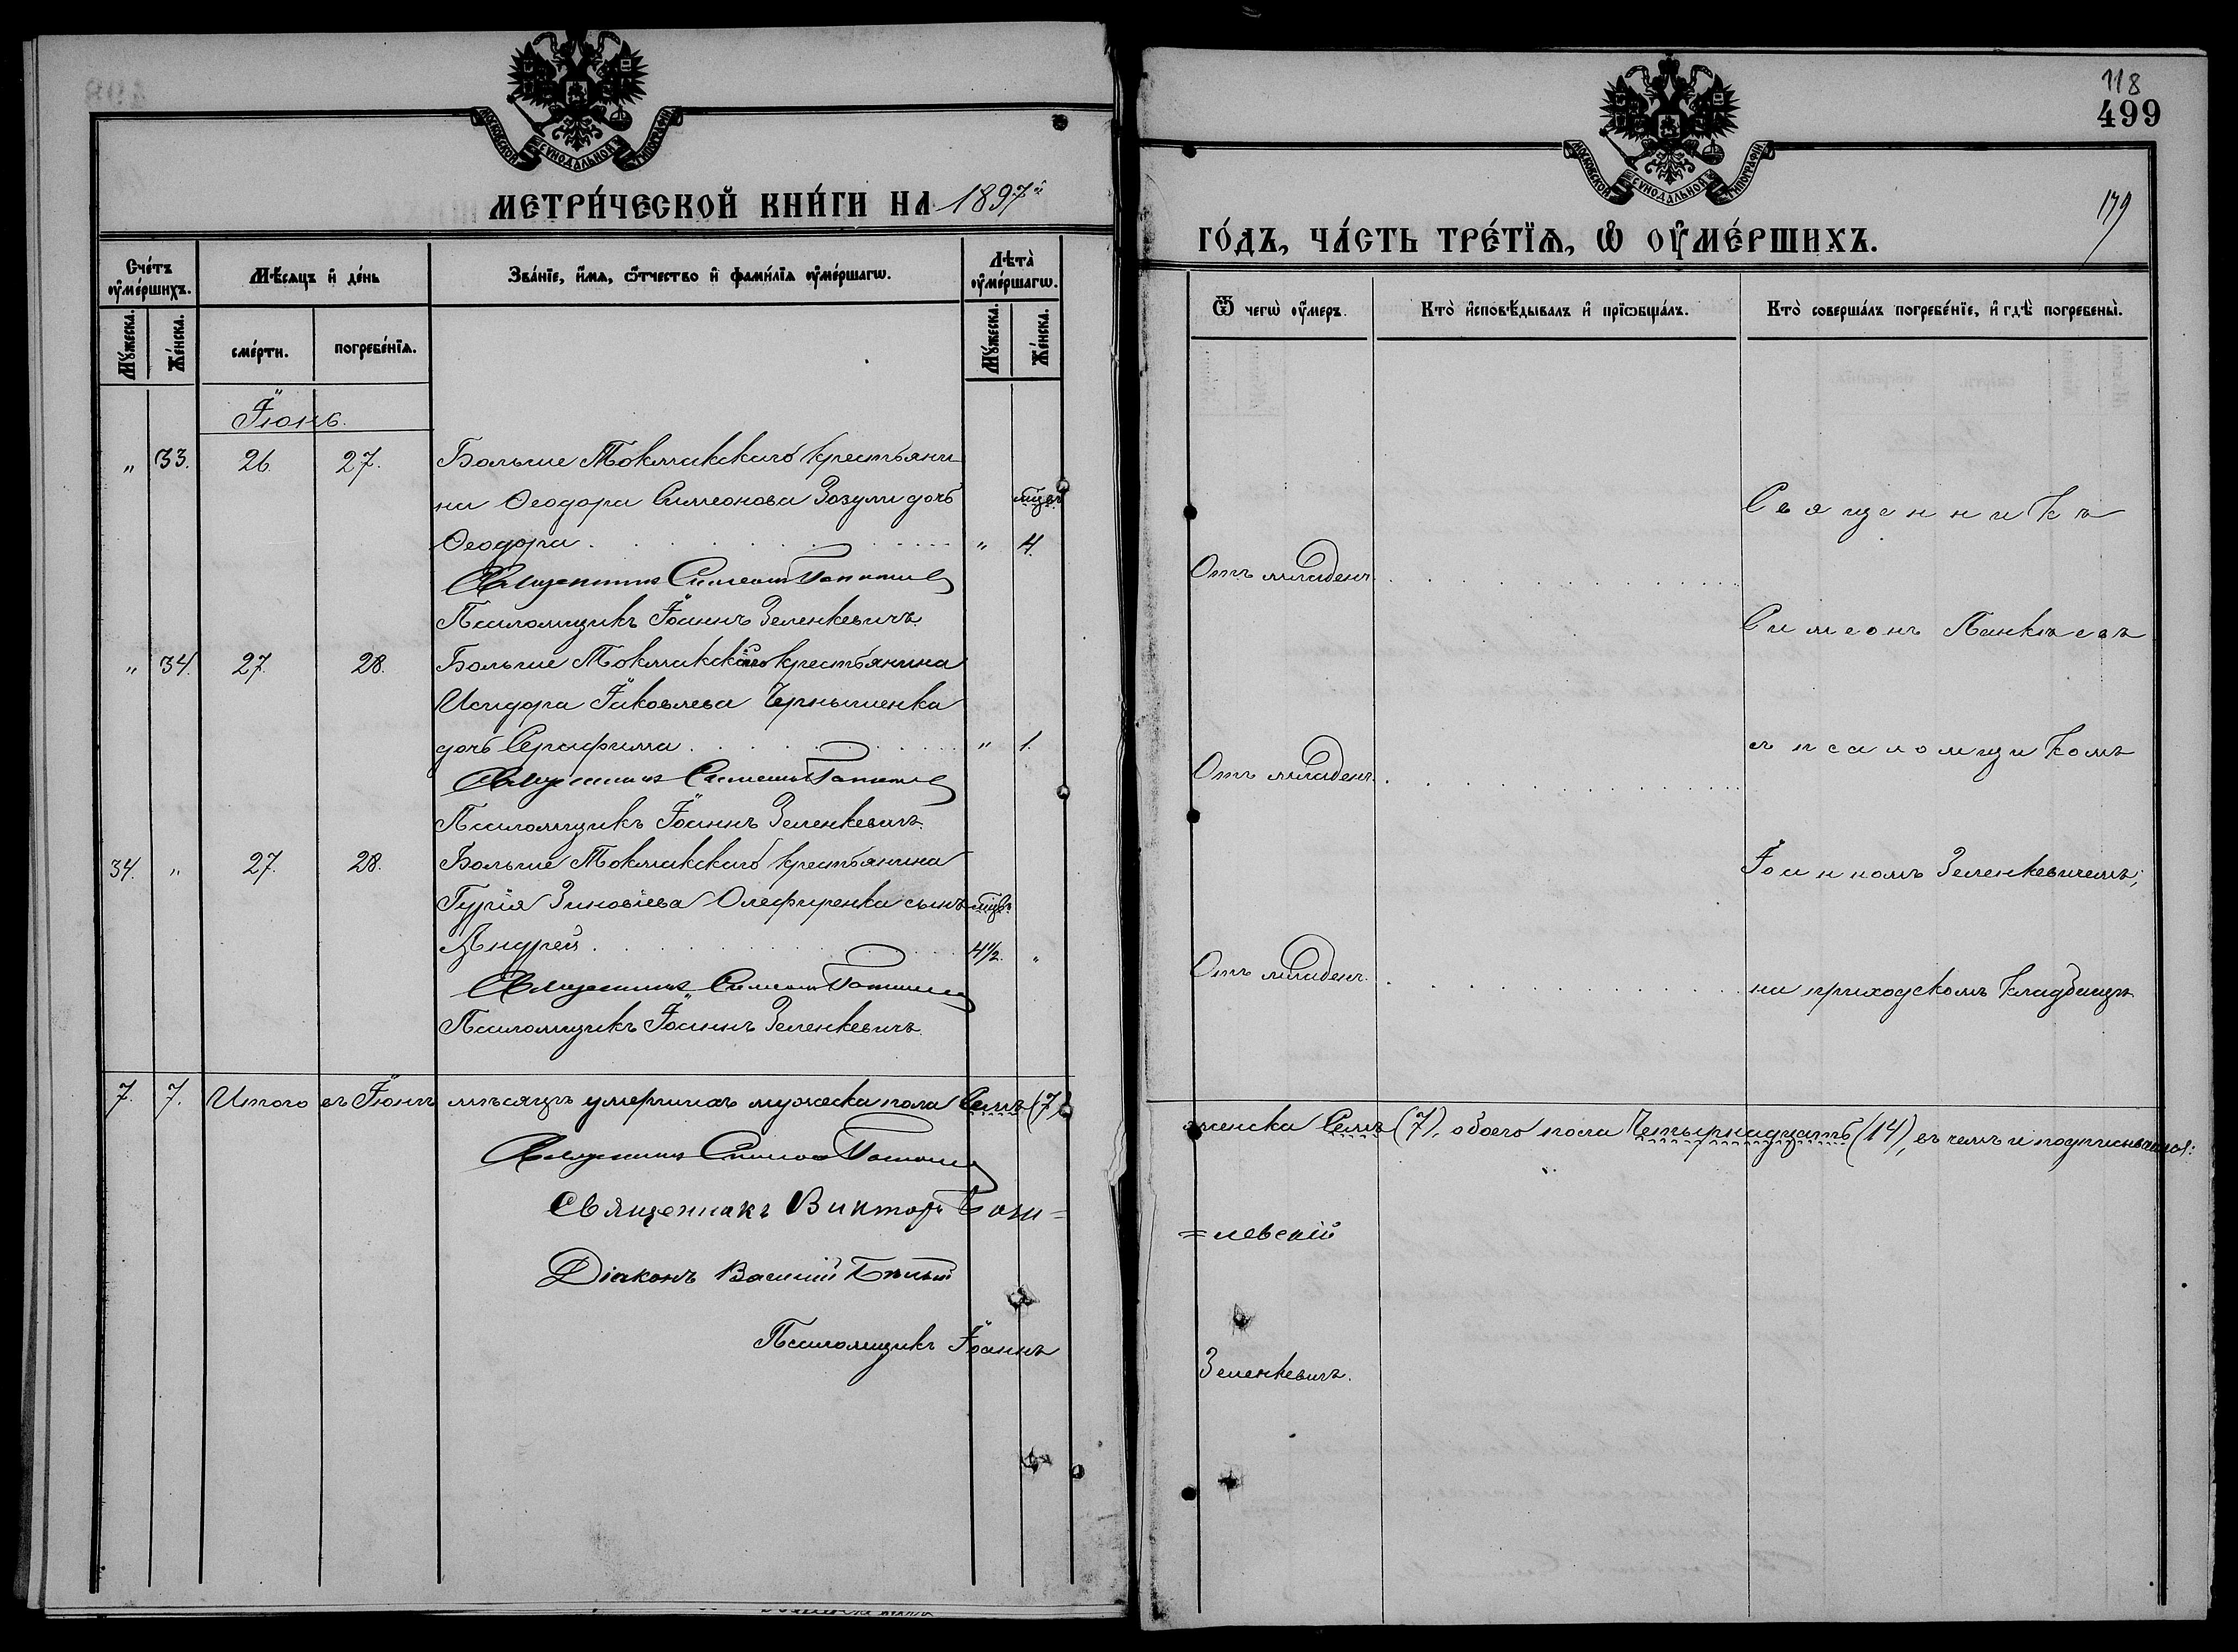 МОСКОВСКОЙ СѴНОДАЛЬНОЙ ТИПОГРАФІИ
МЕТРИ́ЧЕСКОЙ КНИ́ГИ НА 1897й
Сче́тъ оу҆ме́ршихъ.
Мѣ́сяцъ и҆ де́нь
Зва́нїе, и҆́мя, ѻ҆́тчество и҆ фами́лїя оу҆ме́ршагѡ.
Лѣта̀ оу҆ме́ршагѡ.
Мꙋ́жеска.
Же́нска.
сме́рти.
погребе́нїя.
Мꙋ́жеска.
Же́нска.
Іюнь.
„ 33. 26. 27. Больше Токмакскаго крестьяни
на Ѳеодора Симеонова Зозули дочь мцевъ
Ѳеодора „ 4.
Священникъ Симеонъ
Псаломщикъ Іоаннъ Зеленкевичъ.
„ 34. 27. 28. Больше Токмакскаго крестьянина
Исидора Іаковлева Чернышенка
дочь Серафима „ 1.
Священникъ Симеонъ
Псаломщикъ Іоаннъ Зеленкевичъ.
34. „ 27. 28. Больше Токмакскаго крестьянина
Гурія Зиновіева Олефиренка сынъ мцвъ
Андрей 4½. „
Священникъ Симеонъ
Псаломщикъ Іоаннъ Зеленкевичъ.
7. 7. Итого въ Іюнѣ мѣсяцѣ умершихъ мужеска пола Семь (7)
Священникъ Симеонъ
Священникъ Викторъ =
Діаконъ Василий Бѣлый
Псаломщикъ Іоаннъ
118
499
179
МОСКОВСКОЙ СѴНОДАЛЬНОЙ ТИПОГРАФІИ
ГО́ДЪ, ЧА́СТЬ ТРЕ́ТЇЯ, Ѡ҆ ОУ҆МЕ́РШИХЪ.
Ѿ чегѡ̀ оу҆́меръ.
Кто̀ и҆сповѣ́дывалъ и҆ прїѡбща́лъ.
Кто̀ соверша́лъ погребе́нїе, и҆ гдѣ̀ погребены̀.
Священникъ
Отъ младенч.
Симеонъ
съ псаломщикомъ
Отъ младенч.
Іоанномъ Зеленкевичемъ;
Отъ младенч.
на приходскомъ кладбищѣ
женска Семь (7), обоего пола Четырнадцать (14), въ чемъ и подписываемся:
=левскій
Зеленкевичъ.